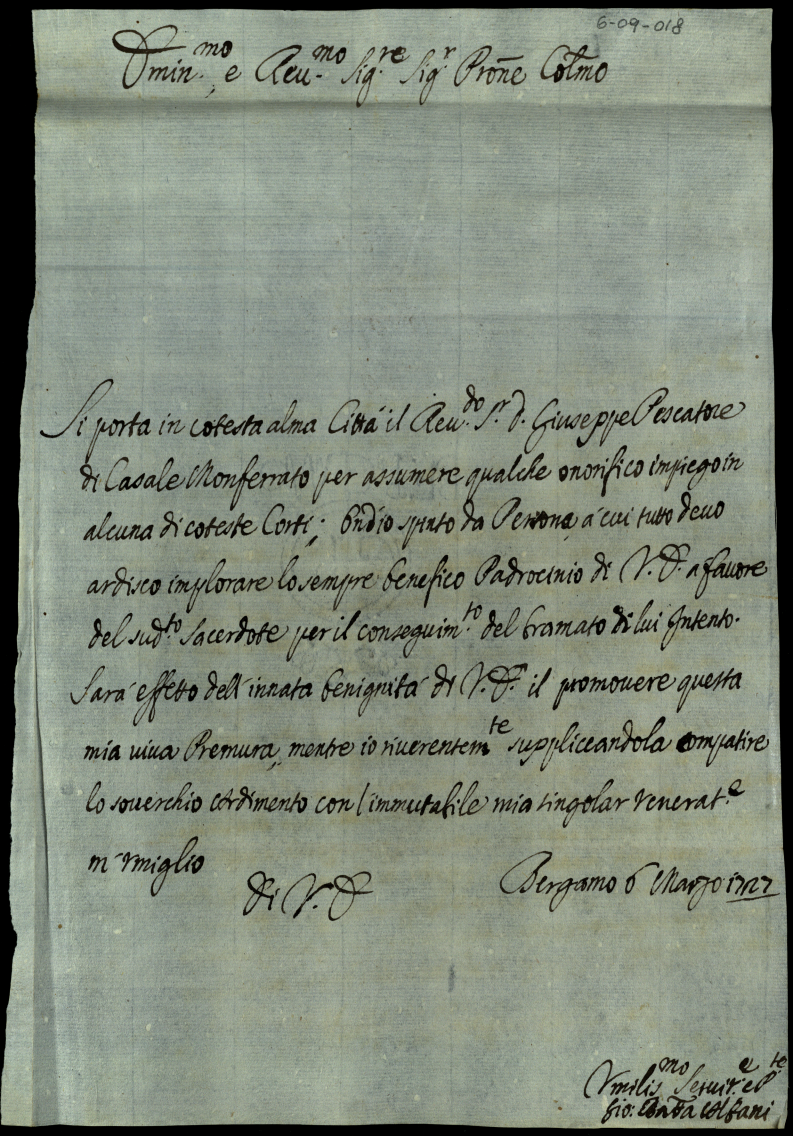 6-09-018
Emin.mo e Reu.mo Sig.re Sig.r Prōne Col̄mo
Si porta in cotesta alma Cittá il Reu.do S.r D. Giuseppe Pescatore
di Casale Monferrato per assumere qualche onorifico impiego in
alcuna di coteste Corti; Ond'io spinto da Persona, á cui tutto deuo
ardisco implorare lo sempre benefico Padrocinio di V. E. a fauore
del sud.to Sacerdote per il conseguim.to del bramato di lui Intento.
Sará effetto dell'innata benignitá di V. E. il promouere questa
mia uiua Premura, mentre io riuerentem.te suppliccandola compatire
lo souerchio Ardimento con l'immutabile mia singolar Venerat.e
m'Vmiglio
Di V. E.
Bergamo 6 Marzo 1727
Vmilis.mo Seruit.e e
Gio: Batta Albani